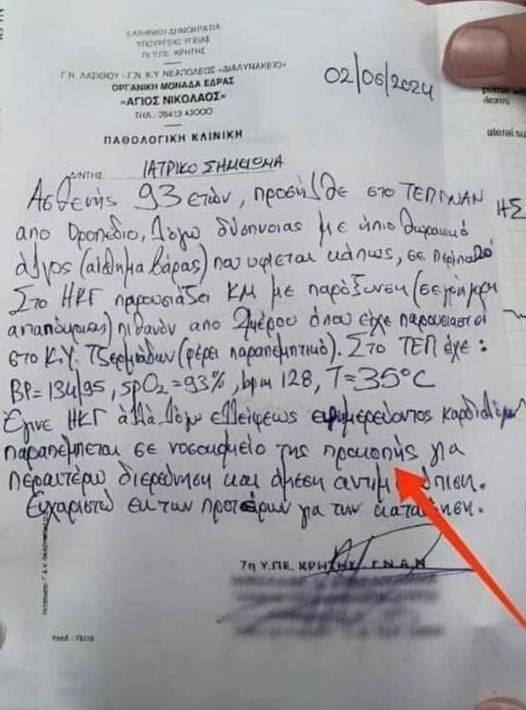 ΕΛΛΗΝΙΚΗ ΔΗΜΟΚΡΑΤΙΑ
ΥΠΟΥΡΓΕΙΟ ΥΓΕΙΑΣ
7η Υ.ΠΕ. ΚΡΗΤΗΣ
Γ.Ν. ΛΑΣΙΘΙΟΥ - Γ.Ν. Κ.Υ ΝΕΑΠΟΛΕΩΣ «ΔΙΑΛΥΝΑΚΕΙΟ»
ΟΡΓΑΝΙΚΗ ΜΟΝΑΔΑ ΕΔΡΑΣ
«ΑΓΙΟΣ ΝΙΚΟΛΑΟΣ»
ΤΗΛ.: 28413 43000
02/06/2024
ΠΑΘΟΛΟΓΙΚΗ ΚΛΙΝΙΚΗ
ΙΑΤΡΙΚΟ ΣΗΜΕΙΩΜΑ
Ασθενής 93 ετών, προσήλθε στο ΤΕΠ ΓΝΑΝ
απο Οροπέδιο, λόγω δύσπνοιας με ήπιο θωρακικό
άλγος (αίσθημα βάρας) που υφίεται κάπως, σε
Στο ΗΚΓ παρουσιάζει ΚΜ με παρόξυνση
πιθανόν απο 2μέρου όπου είχε παρουσιαστεί
στο Κ.Υ. Τζερμιάδων (φέρει παραπεμπτικό). Στο ΤΕΠ έχε:
BP=134/95, SpO2=93%, bpm 128, T=35°C
Έγινε ΗΚΓ αλλά λόγω ελλείψεως εφημερεύοντος
παραπέμπεται σε νοσοκομείο της προκοπής για
περαιτέρω διερεύνηση και άμεση
Ευχαριστώ εκ των προτέρων για την
7η Υ.ΠΕ. ΚΡΗΤΗΣ Γ.Ν.Α.Ν